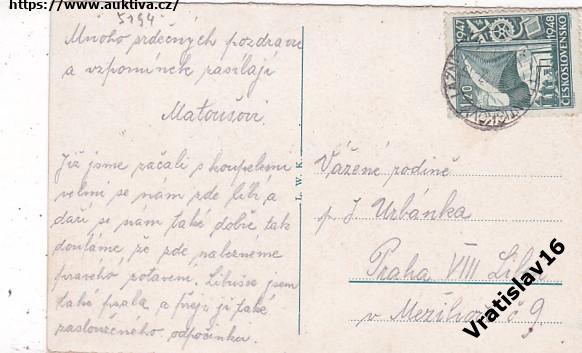 https://www.auktiva.cz/
5194
Mnoho srdečných pozdravů
a vzpomínek zasílají
Matoušovi.
Již jsme začali s koupelemi
velmi se nám zde líbí a
daří se nám také dobře tak
doufáme že zde nalezneme
pravého zotavení. Libušce jsem
také psala a přeji jí také
zaslouženého odpočinku.
L. W. K.
1948
ČESKOSLOVENSKO
1.20
Vážené rodině
p. J. Urbánka
Praha VIII
v č 9
Vratislav16